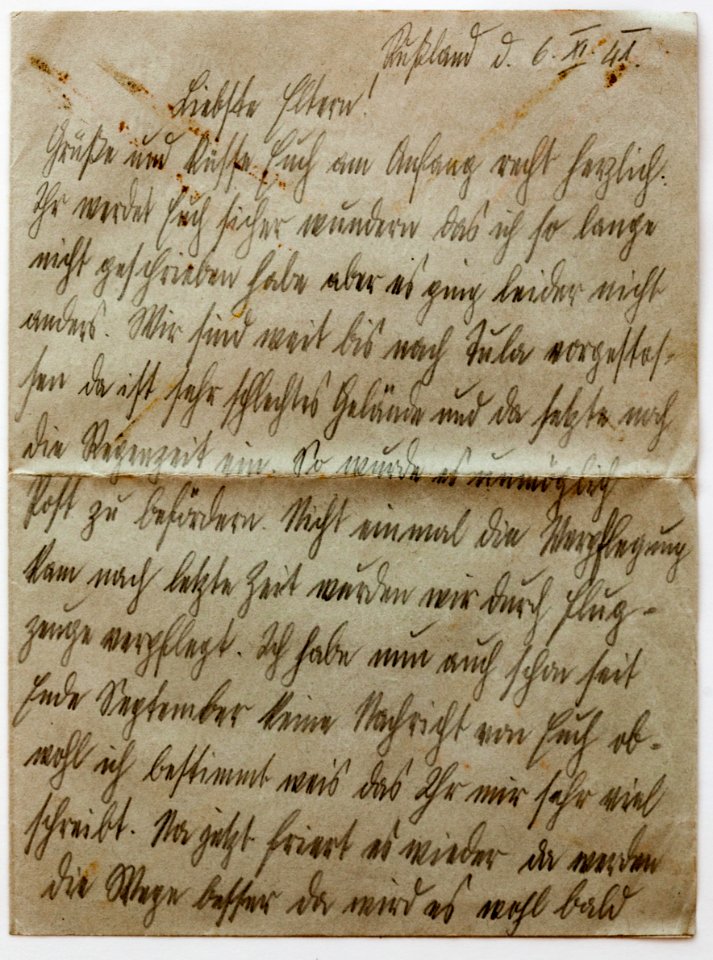 Rußland d. 6. XI. 41.
Liebste Eltern!
Grüße und Küsse Euch am Anfang recht herzlich.
Ihr werdet Euch sicher wundern das ich so lange
nicht geschrieben habe aber es ging leider nicht
anders. Wir sind weit bis nach Tula vorgestos-
sen da ist sehr schlechtes Gelände und da setzte noch
die Regenzeit ein. So wurde es unmöglich
Post zu befördern. Nicht einmal die Verpflegung
kam nach letzte Zeit wurden wir durch Flug-
zeuge verpflegt. Ich habe nun auch schon seit
Ende September keine Nachricht von Euch ob-
wohl ich bestimmt weis das Ihr mir sehr viel
schreibt. Na jetzt friert es wieder da werden
die Wege besser da wird es wohl bald